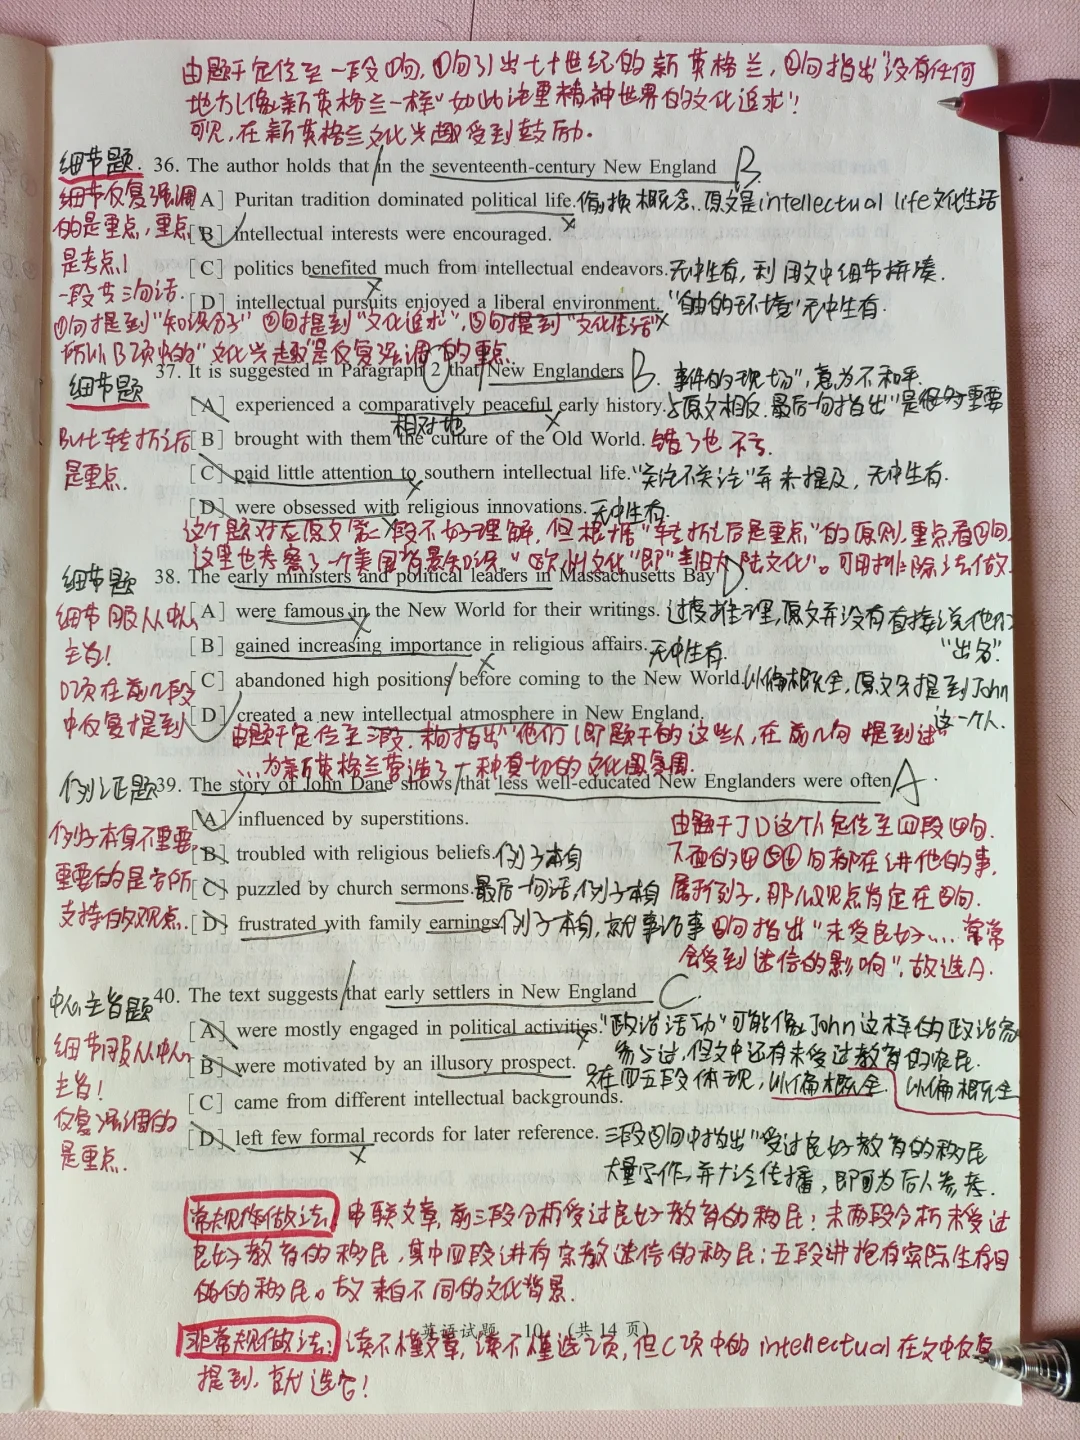 由题干定位至一段①句,①句引出十七世纪的新英格兰,②句指出"没有任何
地方像新英格兰一样"如此注重精神世界的文化追求"!
可见,在新英格兰文化兴趣受到鼓励。
细节题. 36. The author holds that in the seventeenth-century New England B
细节反复强调 [A] Puritan tradition dominated political life. 偷换概念,原文是intellectual life文化生活
的是重点,重点 [B] intellectual interests were encouraged.
是考点! [C] politics benefited much from intellectual endeavors. 无中生有,利用文中细节拼凑.
一段共三句话. [D] intellectual pursuits enjoyed a liberal environment. "自由的环境"无中生有.
①句提到"知识分子" ②句提到"文化追求",③句提到"文化生活"
所以B项中的"文化兴趣"是反复强调的重点.
细节题 37. It is suggested in Paragraph 2 that New Englanders B. 事件的现场",意为不和平.
[A] experienced a comparatively peaceful early history. 与原文相反.最后一句指出"是很多重要
相对地
But转折之后 [B] brought with them the culture of the Old World. 错了也不亏
是重点. [C] paid little attention to southern intellectual life. "关注不关注"并未提及,无中生有.
[D] were obsessed with religious innovations. 无中生有.
这个题对应原文第二段不好理解,但根据"转折之后是重点"的原则,重点看④句
这里也考察了一个美国背景知识,"欧洲文化"即"旧大陆文化"。可用排除法做.
细节题 38. The early ministers and political leaders in Massachusetts Bay D
细节服从中心 [A] were famous in the New World for their writings. 过度推理,原文并没有直接说他们
主旨! [B] gained increasing importance in religious affairs. 无中生有. "出名".
D项在前几段 [C] abandoned high positions before coming to the New World. 以偏概全,原文只提到John
中反复提到 [D] created a new intellectual atmosphere in New England. 这一个人.
由题干定位至三段. 指出"他们(即题干的这些人,在前几句提到过"
…为新英格兰营造了一种真切的文化氛围.
例证题 39. The story of John Dane shows that less well-educated New Englanders were often A.
例子本身不重要, [A] influenced by superstitions. 由题干JD这个人定位至四段④句.
重要的是它所 [B] troubled with religious beliefs. 例子本身 下面的④⑤⑥句都在讲他的事,
支持的观点. [C] puzzled by church sermons. 最后一句话,例子本身 属于例子,那么观点肯定在③句.
[D] frustrated with family earnings. 例子本身,就事论事 ③句指出"未受良好…,常常
会受到迷信的影响",故选A.
中心主旨题 40. The text suggests that early settlers in New England C.
细节服从中心 [A] were mostly engaged in political activities. "政治活动"可能像John这样的政治家
主旨! [B] were motivated by an illusory prospect. 参与过,但文中还有未受过教育的农民.
反复强调的 [C] came from different intellectual backgrounds. 只在四五段体现,以偏概全. 以偏概全
是重点. [D] left few formal records for later reference. 三段②句中指出"受过良好教育的移民
大量写作,并广泛传播,即可为后人参考.
常规作做法: 串联文章,前三段分析受过良好教育的移民!末两段分析未受过
良好教育的移民,其中四段讲有宗教迷信的移民;五段讲抱有实际生存目
的的移民。故来自不同的文化背景.
英语试题 10 (共14页)
非常规做法: 读不懂文章,读不懂选项,但C项中的intellectual在文中反复
提到,就选它!